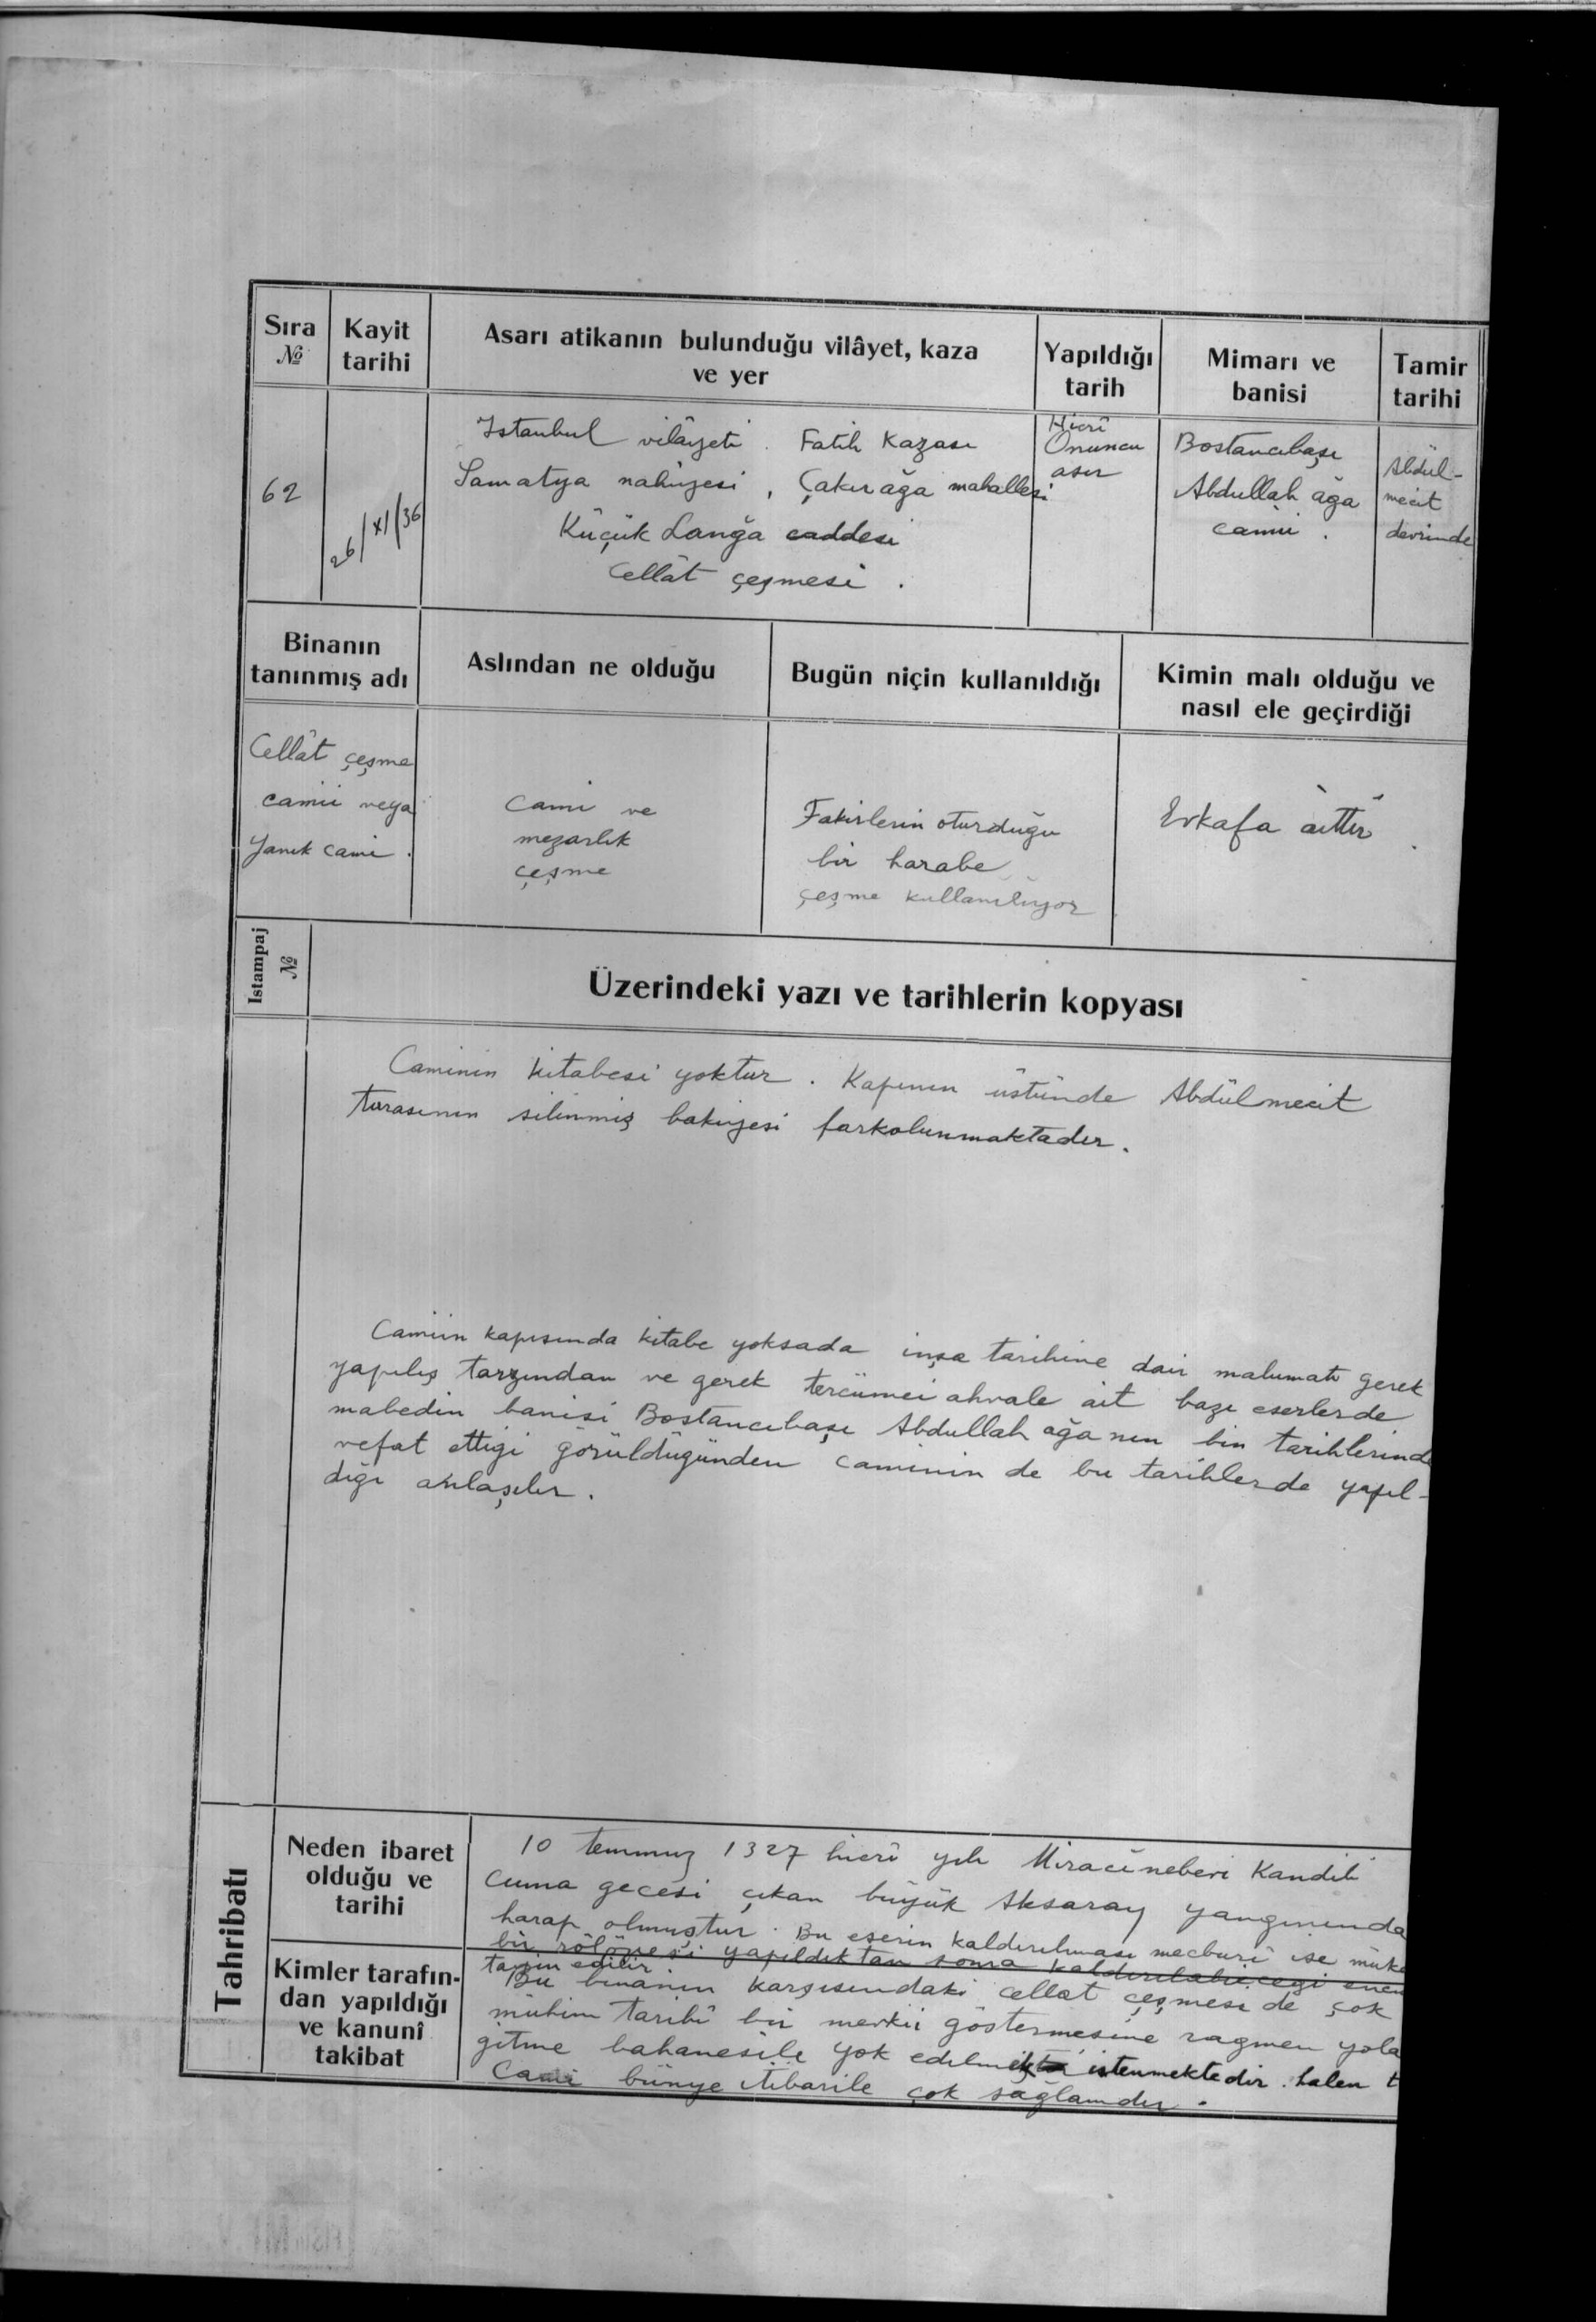 Sıra
№
Kayit
tarihi
Asarı atikanın bulunduğu vilâyet, kaza
ve yer
Yapıldığı
tarih
Mimarı ve
banisi
Tamir
tarihi
62
26/XI/36
Istanbul vilâyeti. Fatih Kazası
Samatya nahiyesi, Çakırağa mahallesi
Küçük Langa caddesi
Cellât çeşmesi.
Hicrî
Onuncu
asır
Bostancıbaşı
Abdullah ağa
camii.
Abdül-
mecit
devrinde
Binanın
tanınmış adı
Aslından ne olduğu
Bugün niçin kullanıldığı
Kimin malı olduğu ve
nasıl ele geçirdiği
Cellât çeşme
camii veya
Yanık cami.
Cami ve
mezarlık
çeşme
Fakirlerin oturduğu
bir harabe
çeşme kullanılıyor
Evkafa aittir.
Istampaj
№
Üzerindeki yazı ve tarihlerin kopyası
Caminin kitabesi yoktur. Kapının üstünde Abdülmecit
turasının silinmiş bakiyesi farkolunmaktadır.
Camiin kapısında kitabe yoksada inşa tarihine dair malumatı gerek
yapılış tarzından ve gerek tercümei ahvale ait bazı eserlerde
mabedin banisi Bostancıbaşı Abdullah ağa nın bin tarihlerinde
vefat ettiği görüldüğünden caminin de bu tarihlerde yapıl-
dığı anlaşılır.
Tahribatı
Neden ibaret
olduğu ve
tarihi
10 temmuz 1327 hicrî yılı Miracînebevi Kandili
Cuma gecesi çıkan büyük Aksaray yangınında
harap olmuştur. Bu eserin kaldırılması mecburî ise müke
bir rölövesi yapıldıktan sonra kaldırılabileceği
tazim edilir
Kimler tarafın-
dan yapıldığı
ve kanunî
takibat
Bu binanın karşısındaki cellat çeşmesi de çok
mühim tarihî bir mevkii göstermesine ragmen yola
gitme bahanesile yok edilmek istenmektedir. halen t
Cami bünye itibarile çok sağlamdır.